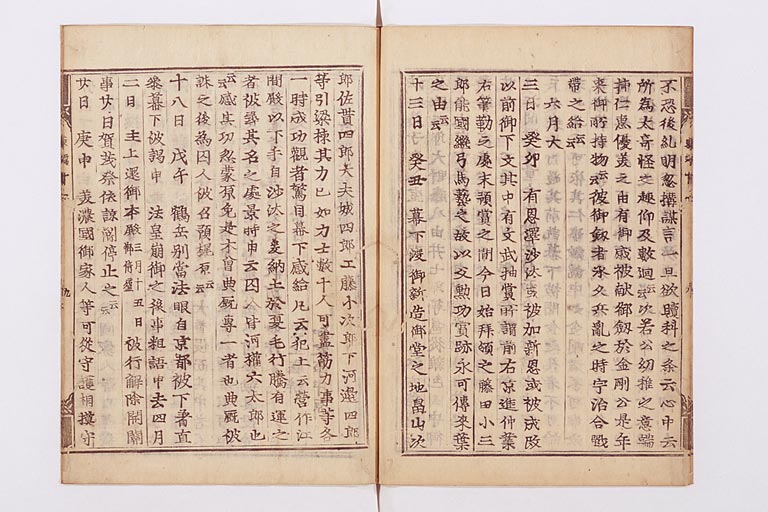 不恐後糺明忽構謀言一旦欲贖科之条云心中云
所為太奇怪之趣仰及數廻云々次若公幼稚之意端
挿仁恩優美之由有御感被献御釼於金剛公是年
來御所持物云々彼御釼者承久兵乱之時宇治合戰
帶之給云々
六月大
三日 癸卯 有恩澤沙汰或被加新恩或被成改
以前御下文其中有文武抽賞所謂前右京進仲業
右筆勤之處未預賞之間今日始拜領之藤田小三
郎能國継弓馬藝之故以父勲功賞跡永可傳來葉
之由云々
十三日 癸丑 幕下渡御新造御堂之地畠山次
郎佐貫四郎大夫城四郎工藤小次郎下河邊四郎
等引梁棟其力已如力士數十人可盡筋力事等各
一時成功觀者驚目幕下感給凡云犯土云營作江
間殿以下手自沙汰之爰納土於夏毛行騰有運之
者被尋其名之處景時申云囚人皆河權六太郎也
云々感其功忽蒙厚免是木曾典厩專一者也典厩被
誅之後為囚人被召預梶原云々
十八日 戊午 鶴岳別當法眼自京都被下着直
參幕下被謁申 法皇崩御之後事粗語申去四月
二日 主上還御本殿 三月十五日 被行解除開關
事廿日賀茂祭依諒闇停止之云々
廿日 庚申 美濃國御家人等可從守護相摸守